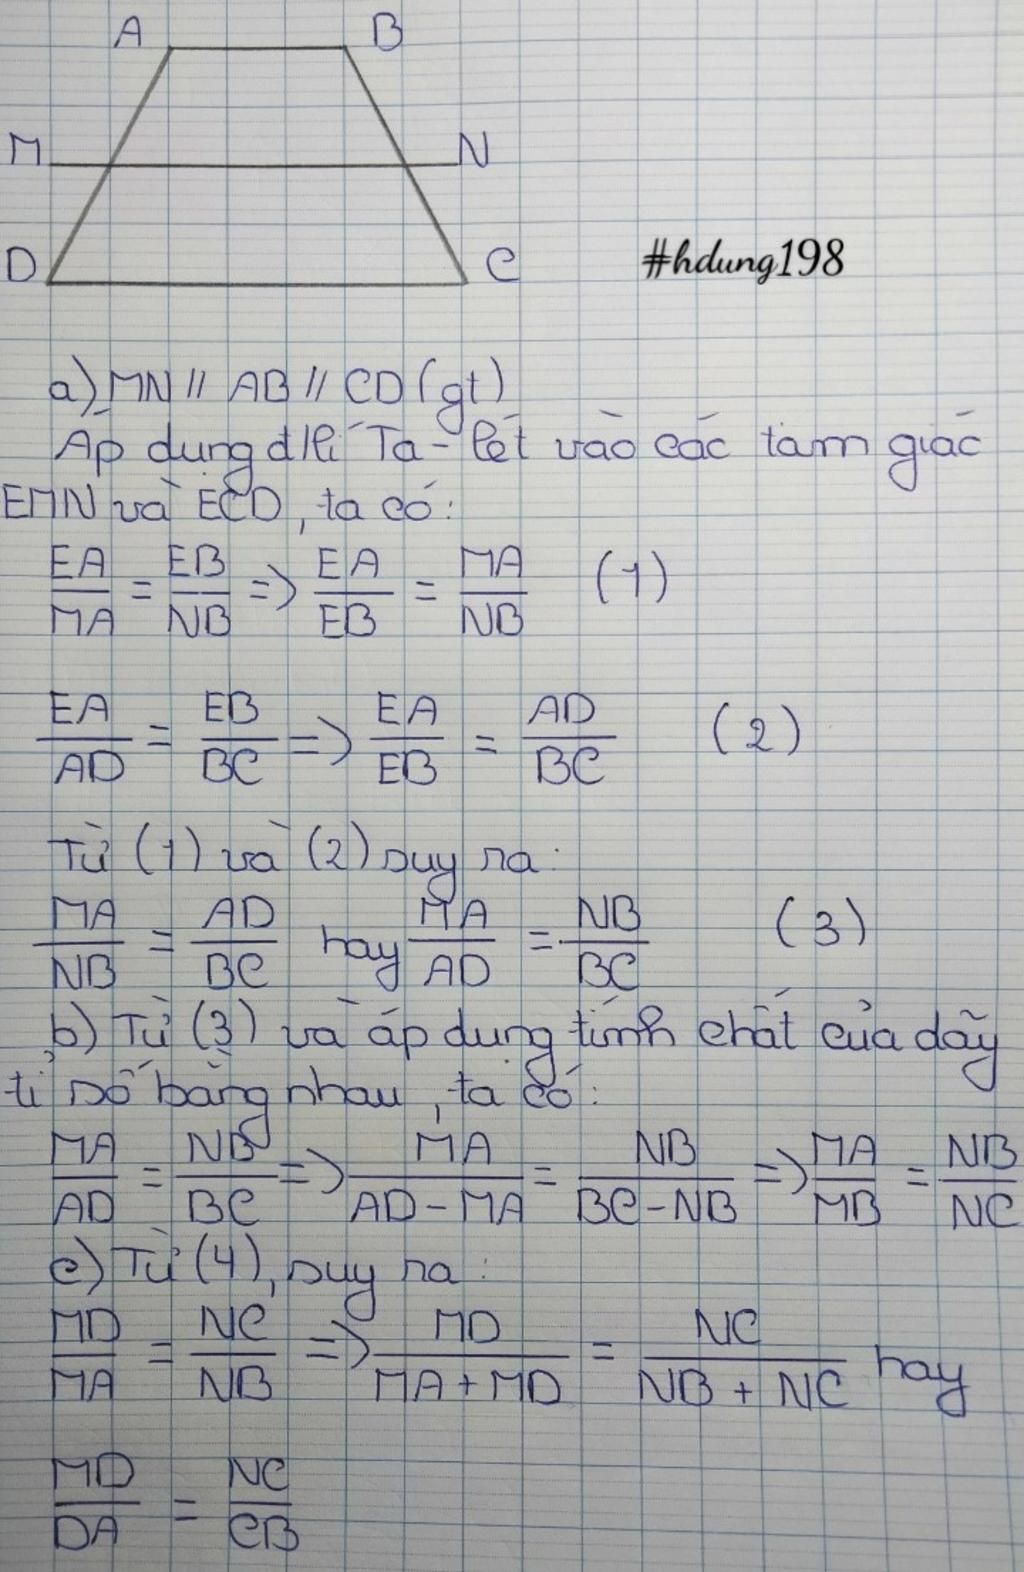 A B
M N
D C
#hdung198
a) MN // AB // CD (gt)
Áp dụng đ/lí Ta-lét vào các tam giác
EMN và ECD, ta có:
EA/MA = EB/NB => EA/EB = MA/NB (1)
EA/AD = EB/BC => EA/EB = AD/BC (2)
Từ (1) và (2) suy ra:
MA/NB = AD/BC hay MA/AD = NB/BC (3)
b) Từ (3) và áp dụng tính chất của dãy
tỉ số bằng nhau, ta có:
MA/AD = NB/BC => MA/(AD - MA) = NB/(BC - NB) => MA/MB = NB/NC
c) Từ (4), suy ra:
MD/MA = NC/NB => MD/(MA + MD) = NC/(NB + NC) hay
MD/DA = NC/CB